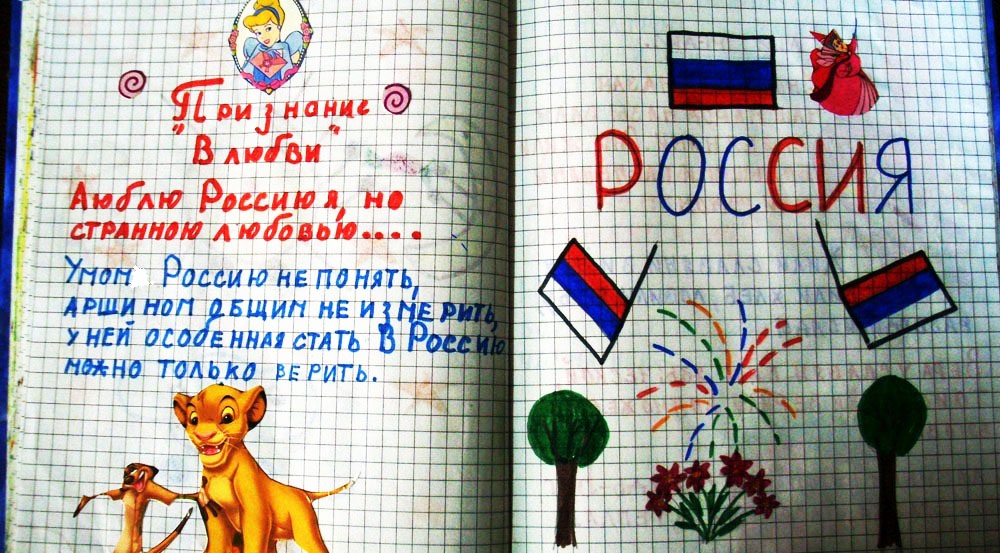 Признание
"В любви"
Люблю Россию я, но
странною любовью....
Умом Россию не понять,
аршином общим не измерить,
у ней особенная стать в Россию
можно только верить.
РОССИЯ